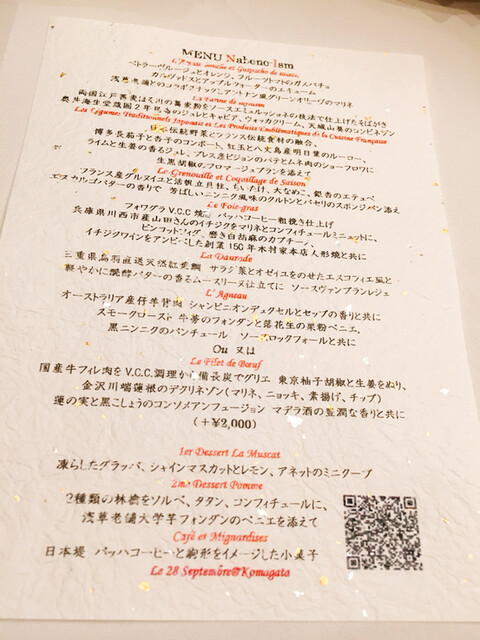 MENU Nabeno-Ism
L'Amuse-bouche et Gaspacho de saison
ベトラーヴルージュとオレンジ、フルーツトマトのガスパチョ
カルヴァドスとアップルウォーターのエキューム
浅草老舗とのコラボクラックにアントナン風グリーンオリーブのマリネ
La Farine de sarrasin
両国江戸蕎麦ほそ川の蕎麦粉をソースエミュルッショネの技法で仕上げたそばがき
奥井海生堂蔵囲2年昆布のジュレとキャビア、ウォッカクリーム、天城山葵のコンビネゾン
Les Légumes Traditionnels Japonais et Les Produits Emblématiques de la Cuisine Française
日本伝統野菜とフランス伝統食材の融合、
博多長茄子と杏子のコンポート、紅玉と八丈島産明日葉のルーロー、
ライムと生姜の香るジュレ、ブレス産ピジョンのパテとムネ肉のショーフロワに
生黒胡椒のフロマージュブランを添えて
Le Grenouille et Coquillage de Saison
フランス産グルヌイユと活帆立貝柱、ちいたけ、大なめこ、銀杏のエテュベ
エスカルゴバターの香りで 芳ばしいニンニク風味のクルトンとパセリのスポンジパン添え
Le Foie-gras
フォワグラ V.C.C 焼き バッハコーヒー粗挽き仕上げ
兵庫県川西市産山田さんのイチジクをマリネとコンフィチュールミニュットに、
ピンコットフィグ、磨き白胡麻のカプチーノ、
イチジクワインをアンビベした創業150年木村家本店人形焼と共に
La Daurade
三重県鳥羽直送天然紅葉鯛 サラダ菜とオゼイユをのせたエスコフィエ風と
軽やかに醗酵バターの香るムースリーヌ仕立てに ソースヴァンブランレジェ
L'Agneau
オーストラリア産仔羊背肉 シャンピニオンデュクセルとセップの香りと共に
スモークロースト 牛蒡のフォンダンと落花生の果粉ベニエ、
黒ニンニクのパンチュール ソースロックフォールと共に
Ou 又は
Le Filet de Bœuf
国産牛フィレ肉をV.C.C.調理から備長炭でグリエ 東京柚子胡椒と生姜をぬり、
金沢川端蓮根のデクリネゾン(マリネ、ニョッキ、素揚げ、チップ)
蓮の実と黒こしょうのコンソメアンフュージョン マデラ酒の豊潤な香りと共に
(+¥2,000)
1er Dessert La Muscat
凍らしたグラッパ、シャインマスカットとレモン、アネットのミニクープ
2me Dessert Pomme
2種類の林檎をソルベ、タタン、コンフィチュールに、
浅草老舗大学芋フォンダンのベニエを添えて
Café et Mignardises
日本堤 バッハコーヒーと駒形をイメージした小菓子
Le 28 Septembre@Komagata